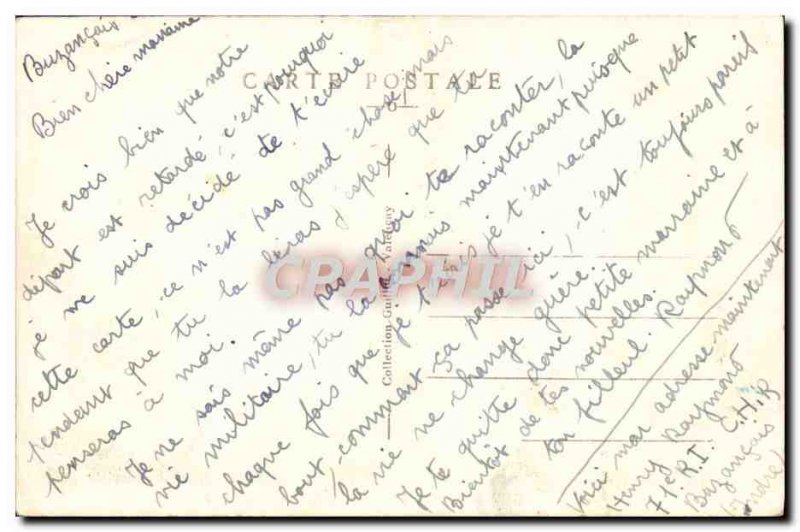 Buzançais
Bien chère marraine
CARTE POSTALE
Je crois bien que notre
départ est retardé, c'est pourquoi
je me suis décidé de t'écrire
cette carte, ce n'est pas grand chose mais
pendant que tu la liras j'espère que tu
penseras à moi.
Je ne sais même pas quoi te raconter, la
vie militaire, tu la connais maintenant puisque
chaque fois que je t'écris je t'en raconte un petit
bout, comment ça passe ici, c'est toujours pareil
la vie ne change guère.
Je te quitte donc petite marraine et à
Bientôt de tes nouvelles.
ton filleul. Raymond
Voici mon adresse maintenant
Henry Raymond
71e R.I C.H.R
Buzançais
Indre
Collection Guillet, Valençay
CPAPHIL